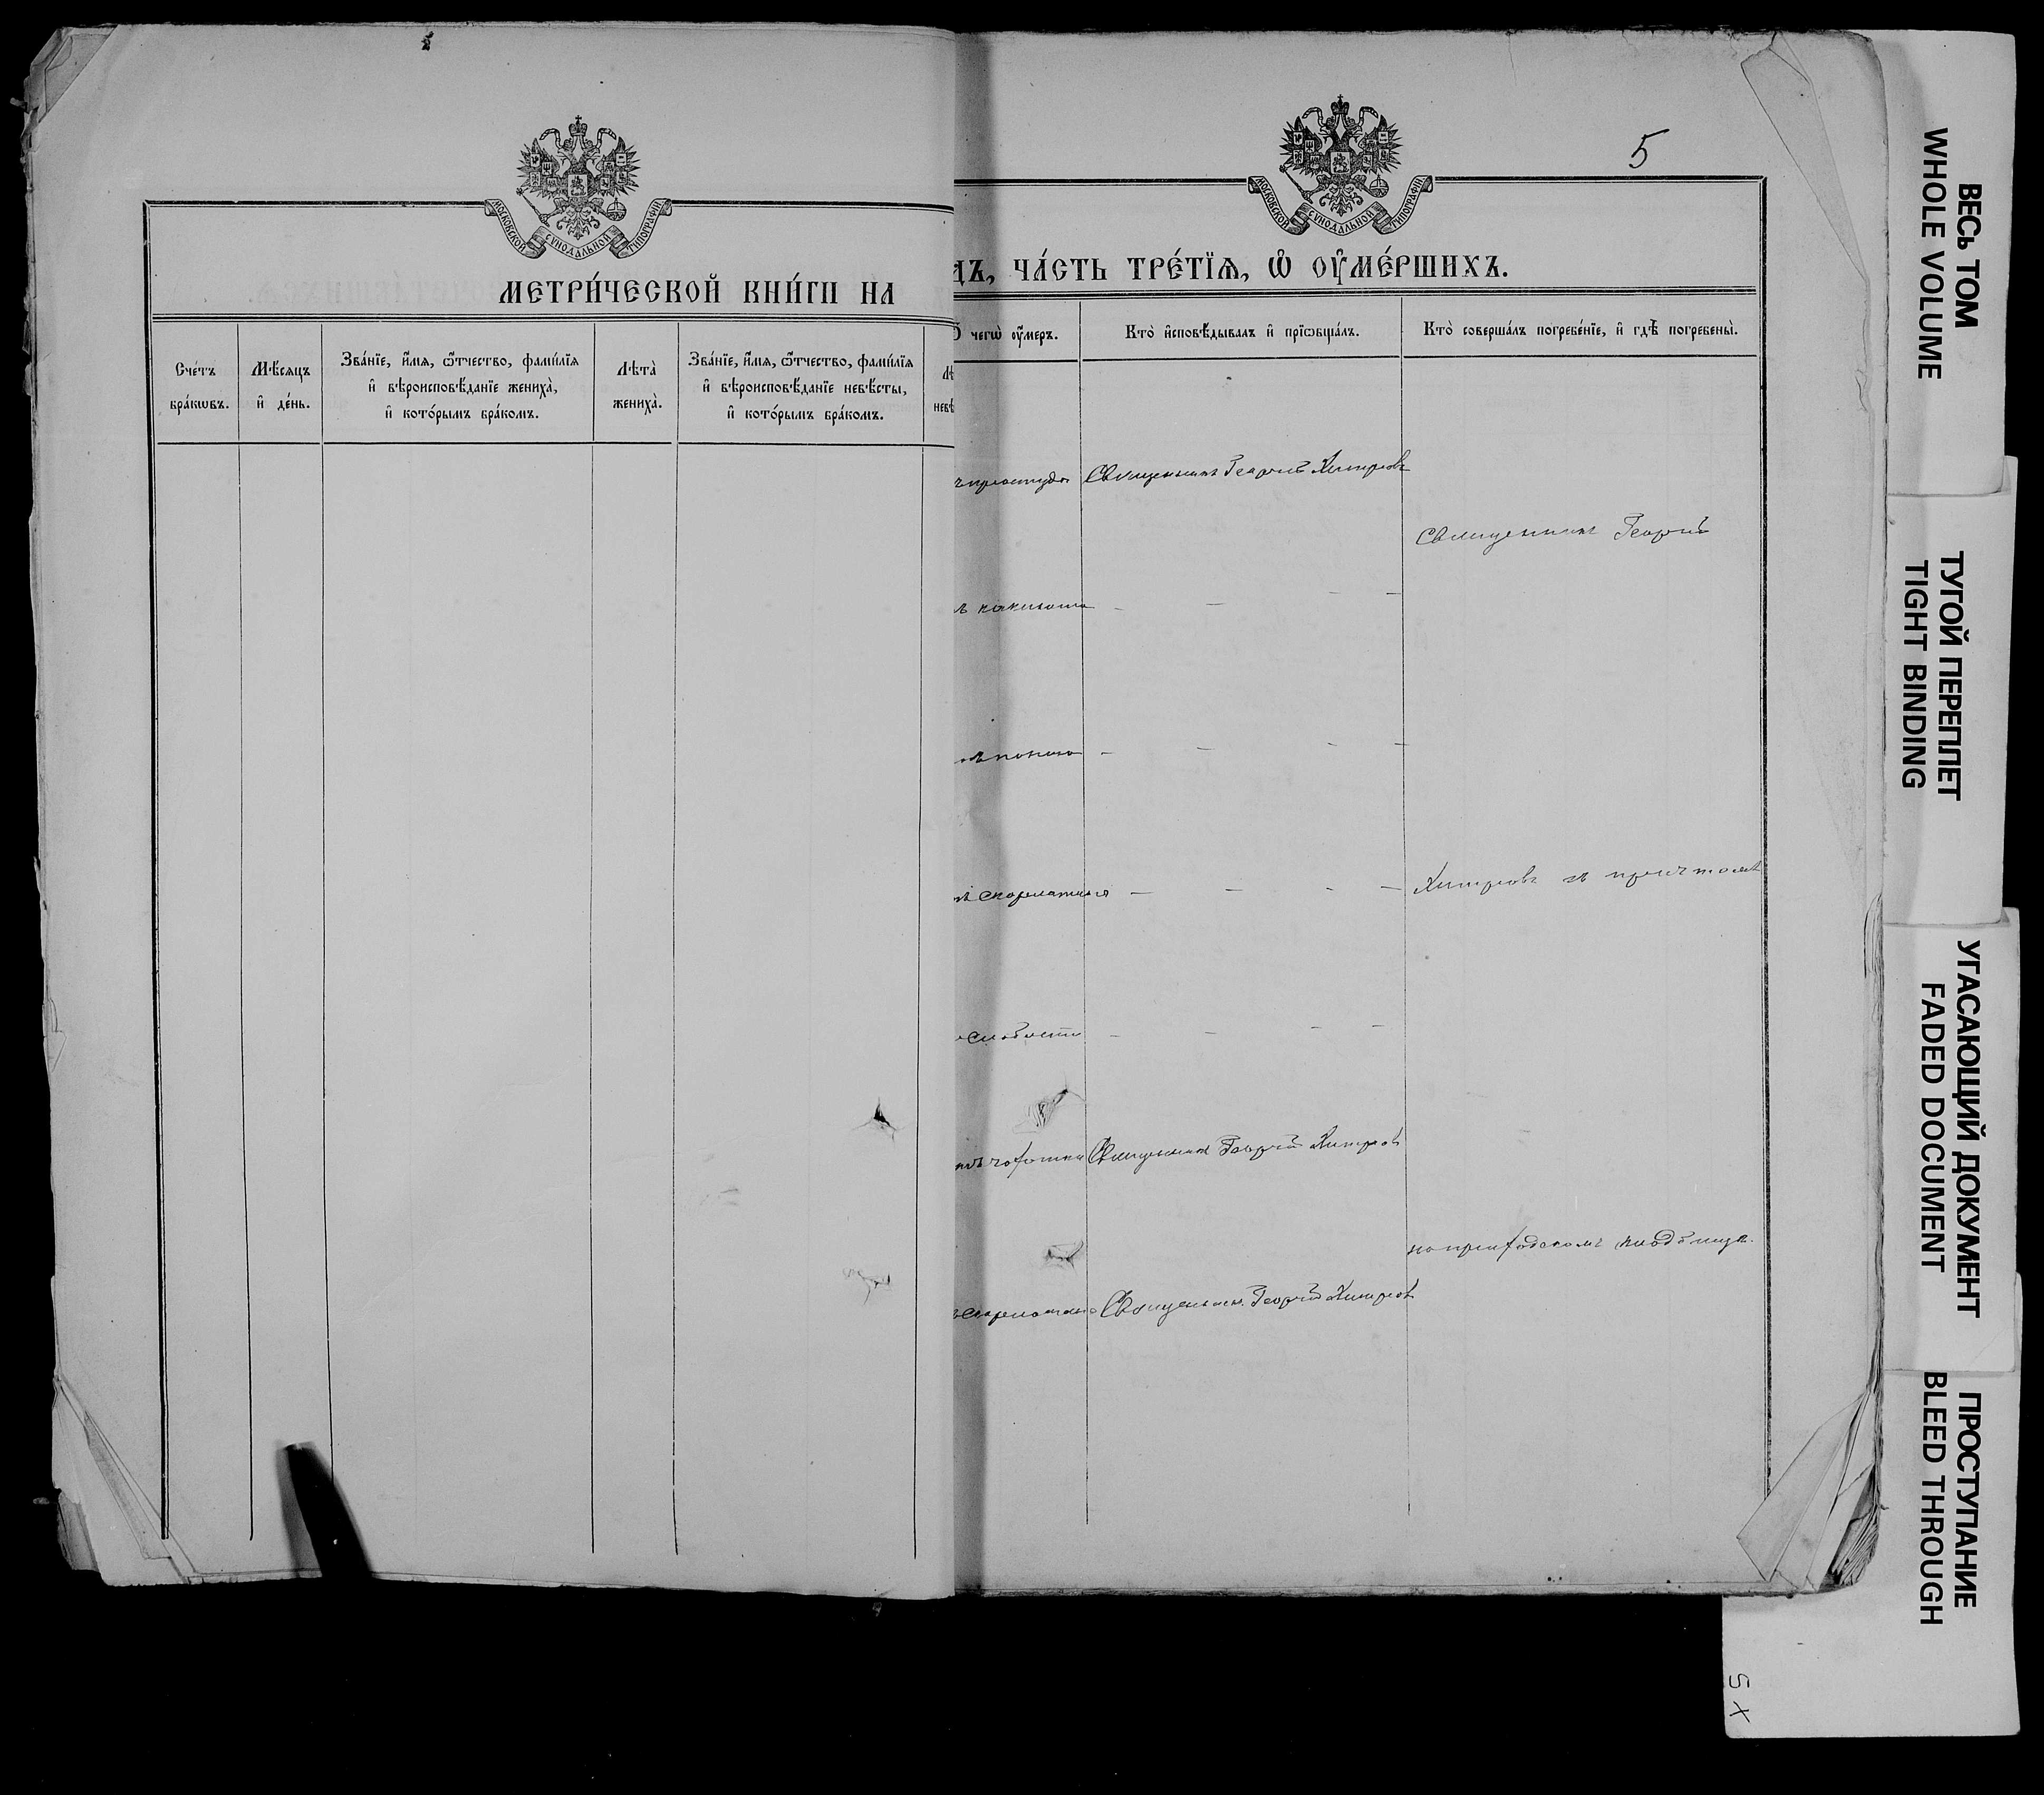 МОСКОВСКОЙ СУНОДАЛЬНОЙ ТИПОГРАФІИ
МЕТРИ́ЧЕСКОЙ КНИ́ГИ НА
Сче́тъ бра́кѡвъ.
Мѣ́сяцъ и҆ де́нь.
Зва́нїе, и҆́мя, ѻ҆́тчество, фами́лїя и҆ вѣроисповѣ́данїе жениха̀, и҆ кото́рымъ бра́комъ.
Лѣта̀ жениха̀.
Зва́нїе, и҆́мя, ѻ҆́тчество, фами́лїя и҆ вѣроисповѣ́данїе невѣ́сты, и҆ кото́рымъ бра́комъ.
Лѣ
невѣ
5
МОСКОВСКОЙ СУНОДАЛЬНОЙ ТИПОГРАФІИ
дъ, ЧА́СТЬ ТРЕ́ТЇЯ, Ѡ҆ ОУ҆МЕ́РШИХЪ.
чегѡ̀ оу҆́меръ.
Кто̀ и҆сповѣ́дывалъ и҆ прїѡбща́лъ.
Кто̀ соверша́лъ погребе́нїе, и҆ гдѣ̀ погребены̀.
простуды
Священникъ Георгій Хитровъ
Священникъ Георгій
коклюша
скарлатины
Хитровъ съ причтомъ
слабости
чахотки
Священникъ Георгій Хитровъ
на приходскомъ кладбищѣ.
скарлатины
Священник. Георгій Хитровъ
ВЕСЬ ТОМ
WHOLE VOLUME
ТУГОЙ ПЕРЕПЛЕТ
TIGHT BINDING
УГАСАЮЩИЙ ДОКУМЕНТ
FADED DOCUMENT
ПРОСТУПАНИЕ
BLEED THROUGH
5 X